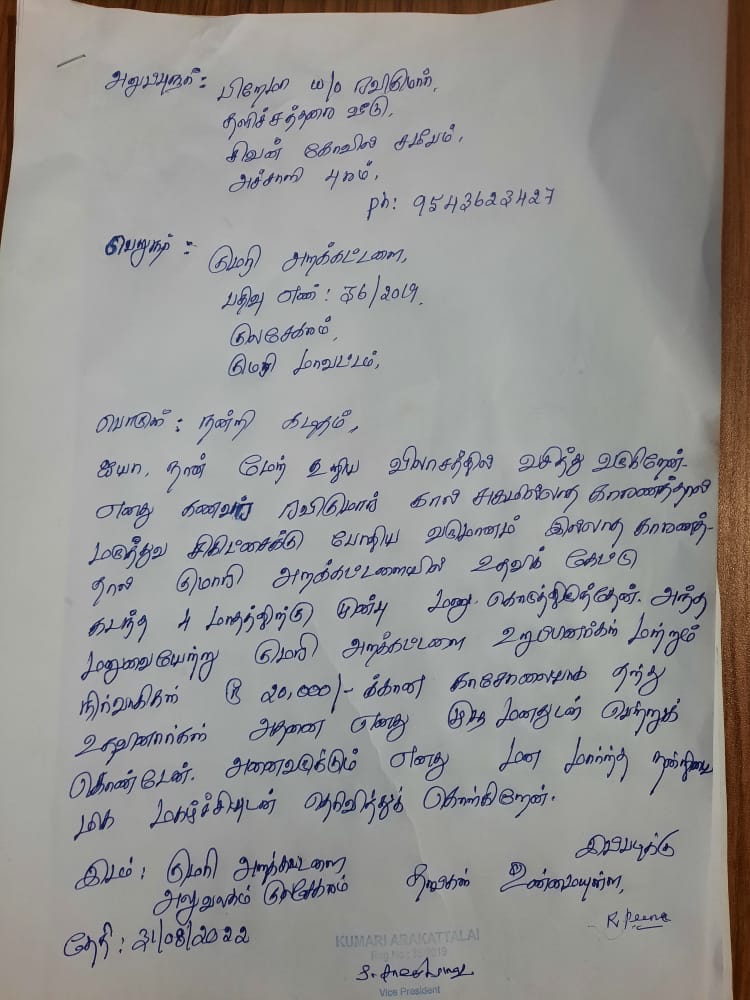 அனுப்புநர் : பிறேமா w/o ரவிகுமார்,
தளிச்சத்தரை வீடு,
சிவன் கோவில் சமீபம்,
அச்சாணி முகம்,
ph: 9543623427
பெறுநர் : குமரி அறக்கட்டளை,
பதிவு எண் : 36/2019.
குலசேகரம்,
குமரி மாவட்டம்,
பொருள் : நன்றி கடிதம்,
ஐயா, நான் மேற் கூறிய விலாசத்தில் வசித்து வருகிறேன்.
எனது கணவர் ரவிகுமார் கால் சுகமில்லாத காரணத்தால்
மருத்துவ சிகிட்சைக்கு போதிய வருமானம் இல்லாத காரணத்-
தால் குமரி அறக்கட்டளையில் உதவிக் கேட்டு
கடந்த 4 மாதத்திற்கு முன்பு மனு கொடுத்திருந்தேன். அந்த
மனுவையேற்று குமரி அறக்கட்டளை உறுப்பினர்கள் மற்றும்
நிர்வாகிகள் ரூ 20,000/- க்கான காசோலையாக தந்து
உதவினார்கள் அதனை எனது முழு மனதுடன் பெற்றுக்
கொண்டேன். அனைவருக்கும் எனது மன மார்ந்த நன்றியை
மிக மகிழ்ச்சியுடன் தெரிவித்துக் கொள்கிறேன்.
இடம் : குமரி அறக்கட்டளை
அலுவலகம் குலசேகரம்
இப்படிக்கு
தங்கள் உண்மையுள்ள,
தேதி : 31/08/2022
KUMARI ARAKATTALAI
Vice President